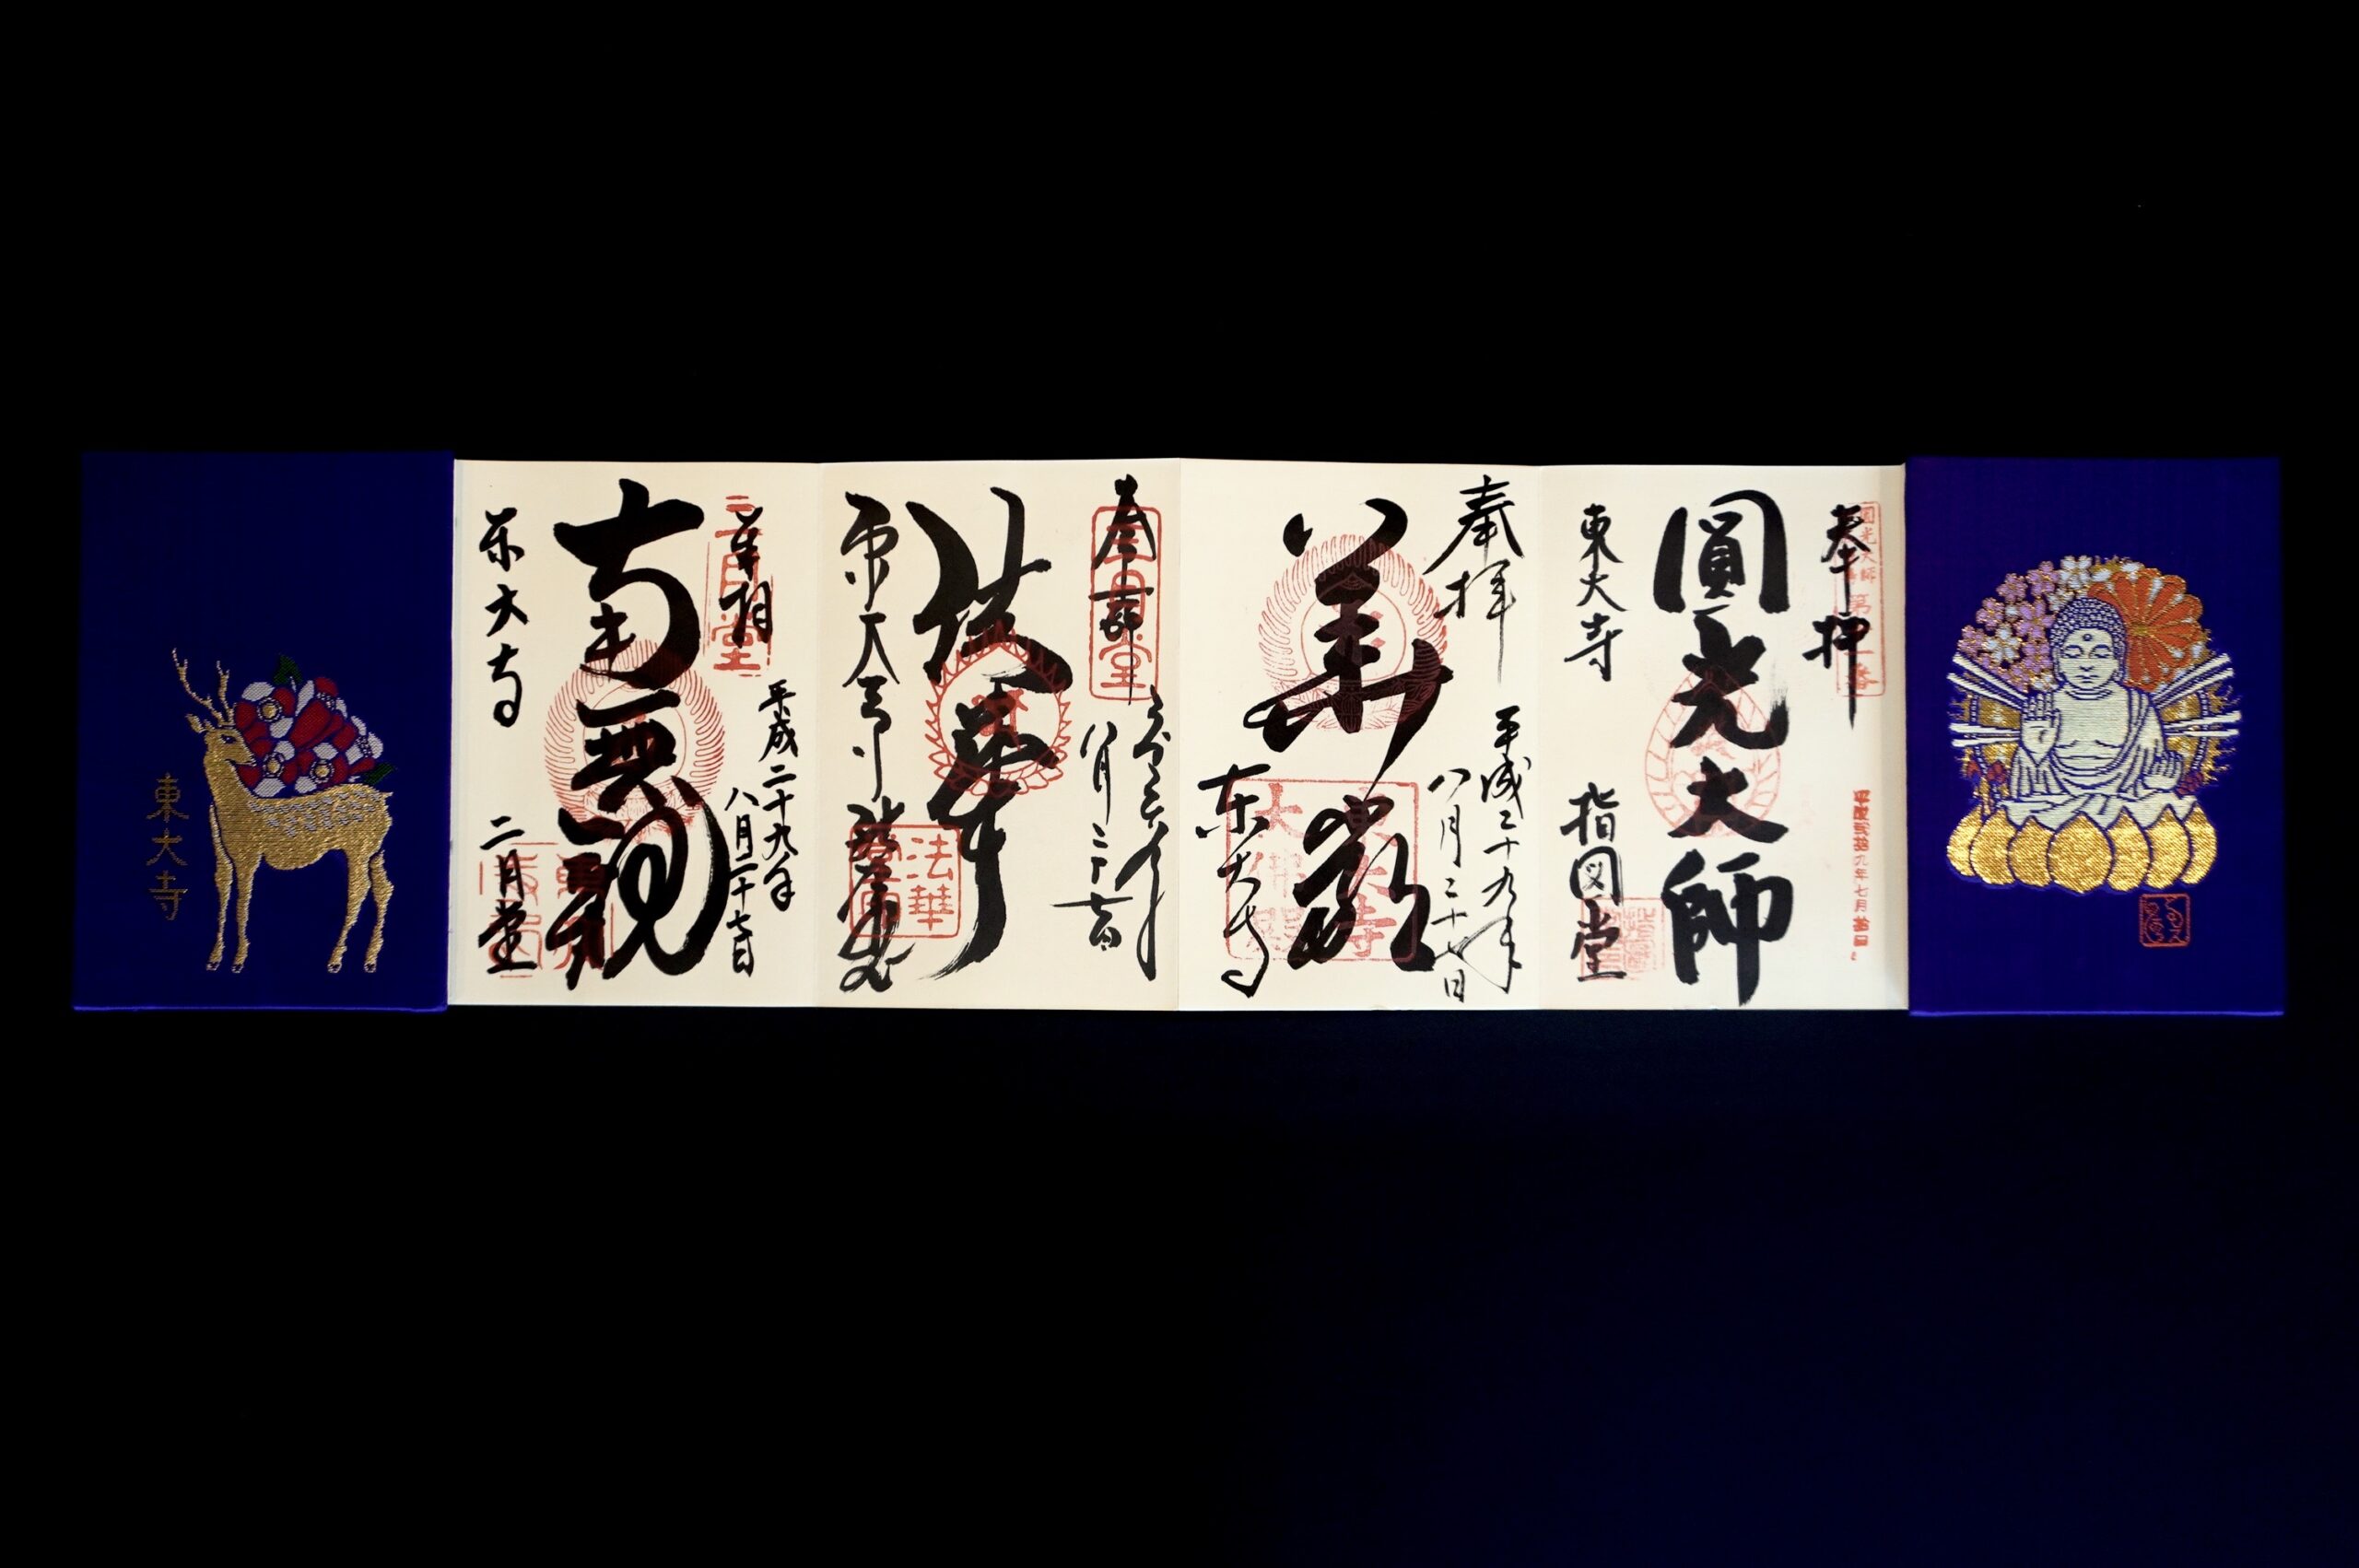 奉拝
圓光大師
東大寺
指図堂
奉拝
平成二十九年
八月二十七日
華厳
東大寺
三月堂
八月二十七日
法華
東大寺
法華堂
二月堂
奉拝
平成二十九年
八月二十七日
南無観
東大寺
二月堂
東大寺